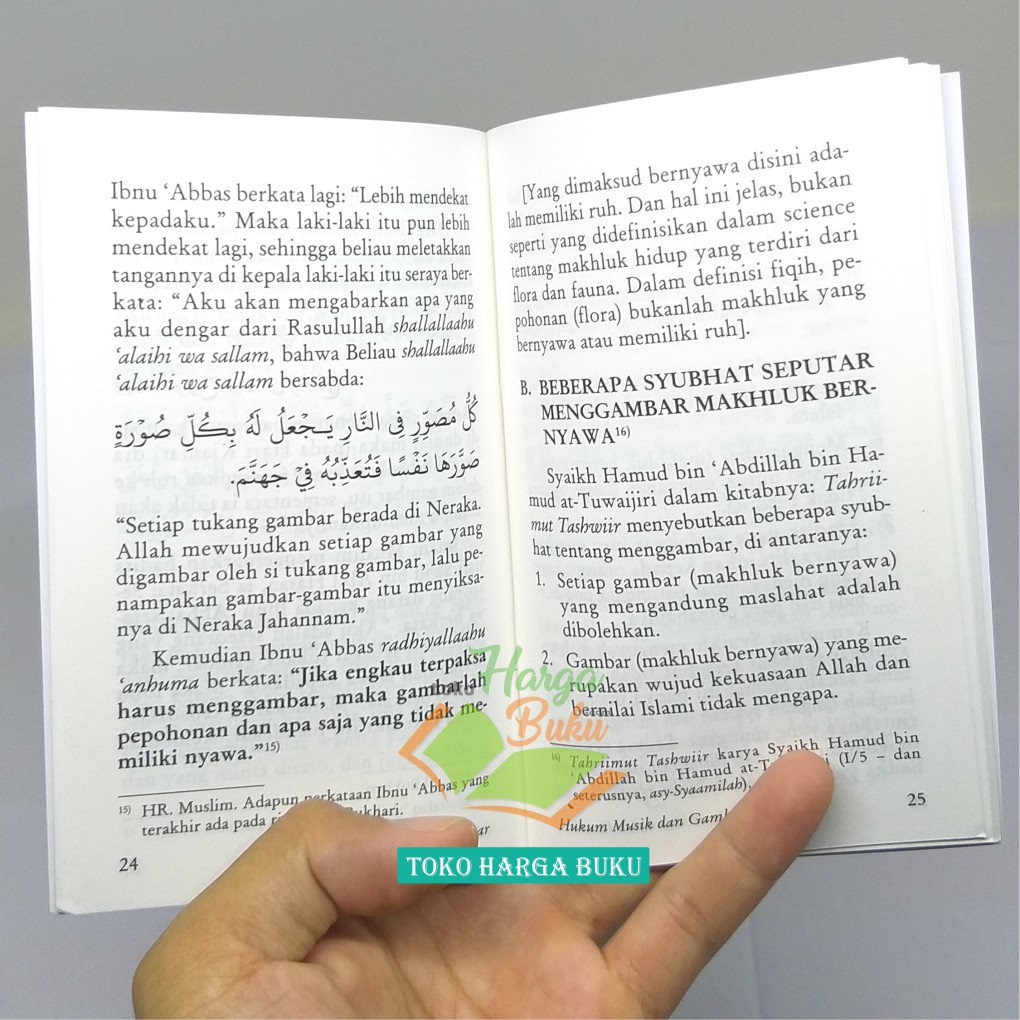 Ibnu ‘Abbas berkata lagi: “Lebih mendekat
kepadaku.” Maka laki-laki itu pun lebih
mendekat lagi, sehingga beliau meletakkan
tangannya di kepala laki-laki itu seraya ber-
kata: “Aku akan mengabarkan apa yang
aku dengar dari Rasulullah shallallaahu
‘alaihi wa sallam, bahwa Beliau shallallaahu
‘alaihi wa sallam bersabda:
كُلُّ مُصَوِّرٍ فِي النَّارِ يَجْعَلُ لَهُ بِكُلِّ صُوْرَةٍ
صَوَّرَهَا نَفْسًا فَتُعَذِّبُهُ فِيْ جَهَنَّمَ.
“Setiap tukang gambar berada di Neraka.
Allah mewujudkan setiap gambar yang
digambar oleh si tukang gambar, lalu pe-
nampakan gambar-gambar itu menyiksa-
nya di Neraka Jahannam.”
Kemudian Ibnu ‘Abbas radhiyallaahu
‘anhuma berkata: “Jika engkau terpaksa
harus menggambar, maka gambarlah
pepohonan dan apa saja yang tidak me-
miliki nyawa.”15)
15) HR. Muslim. Adapun perkataan Ibnu ‘Abbas yang
terakhir ada pada
24
[Yang dimaksud bernyawa disini ada-
lah memiliki ruh. Dan hal ini jelas, bukan
seperti yang didefinisikan dalam science
tentang makhluk hidup yang terdiri dari
flora dan fauna. Dalam definisi fiqih, pe-
pohonan (flora) bukanlah makhluk yang
bernyawa atau memiliki ruh].
B. BEBERAPA SYUBHAT SEPUTAR
MENGGAMBAR MAKHLUK BER-
NYAWA16)
Syaikh Hamud bin ‘Abdillah bin Ha-
mud at-Tuwaijiri dalam kitabnya: Tahrii-
mut Tashwiir menyebutkan beberapa syub-
hat tentang menggambar, di antaranya:
1. Setiap gambar (makhluk bernyawa)
yang mengandung maslahat adalah
dibolehkan.
2. Gambar (makhluk bernyawa) yang me-
rupakan wujud kekuasaan Allah dan
bernilai Islami tidak mengapa.
16) Tahriimut Tashwiir karya Syaikh Hamud bin
‘Abdillah bin Hamud (I/5 – dan
seterusnya, asy-Syaamilah).
Hukum Musik dan
25
TOKO
Harga
Buku
TOKO HARGA BUKU